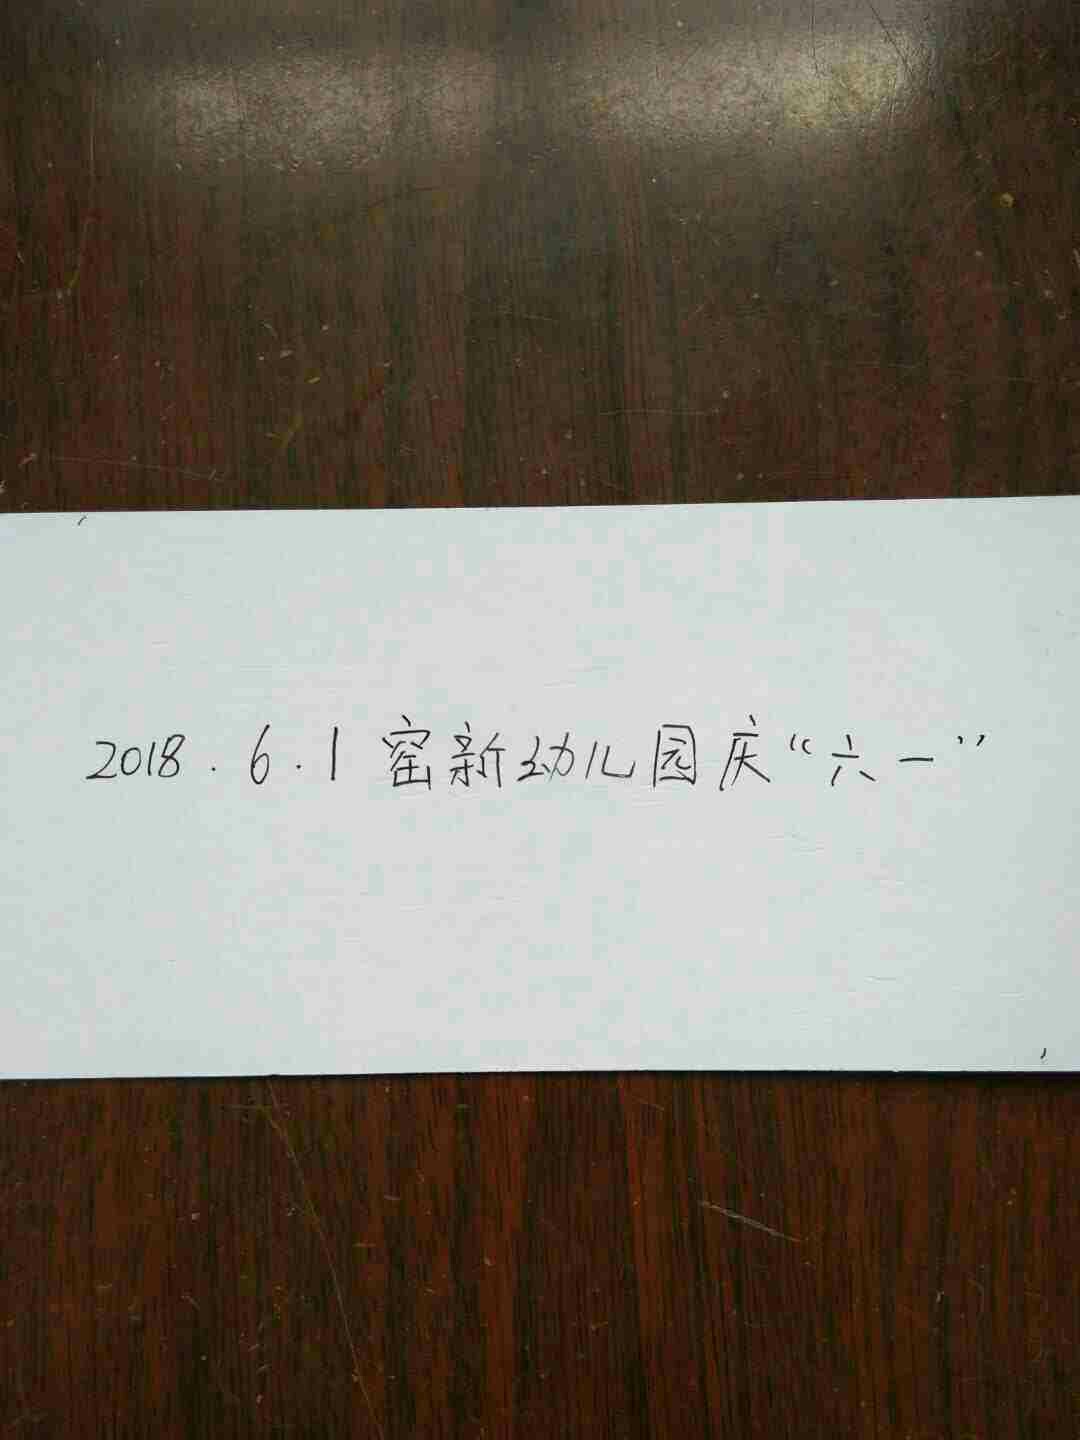 2018.6.1窑新幼儿园庆“六一”